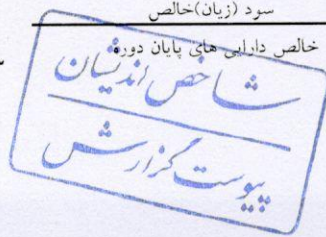 سود (زیان)خالص
خالص دارایی های پایان دوره
شاخص اندیشان
پیوست گزارش